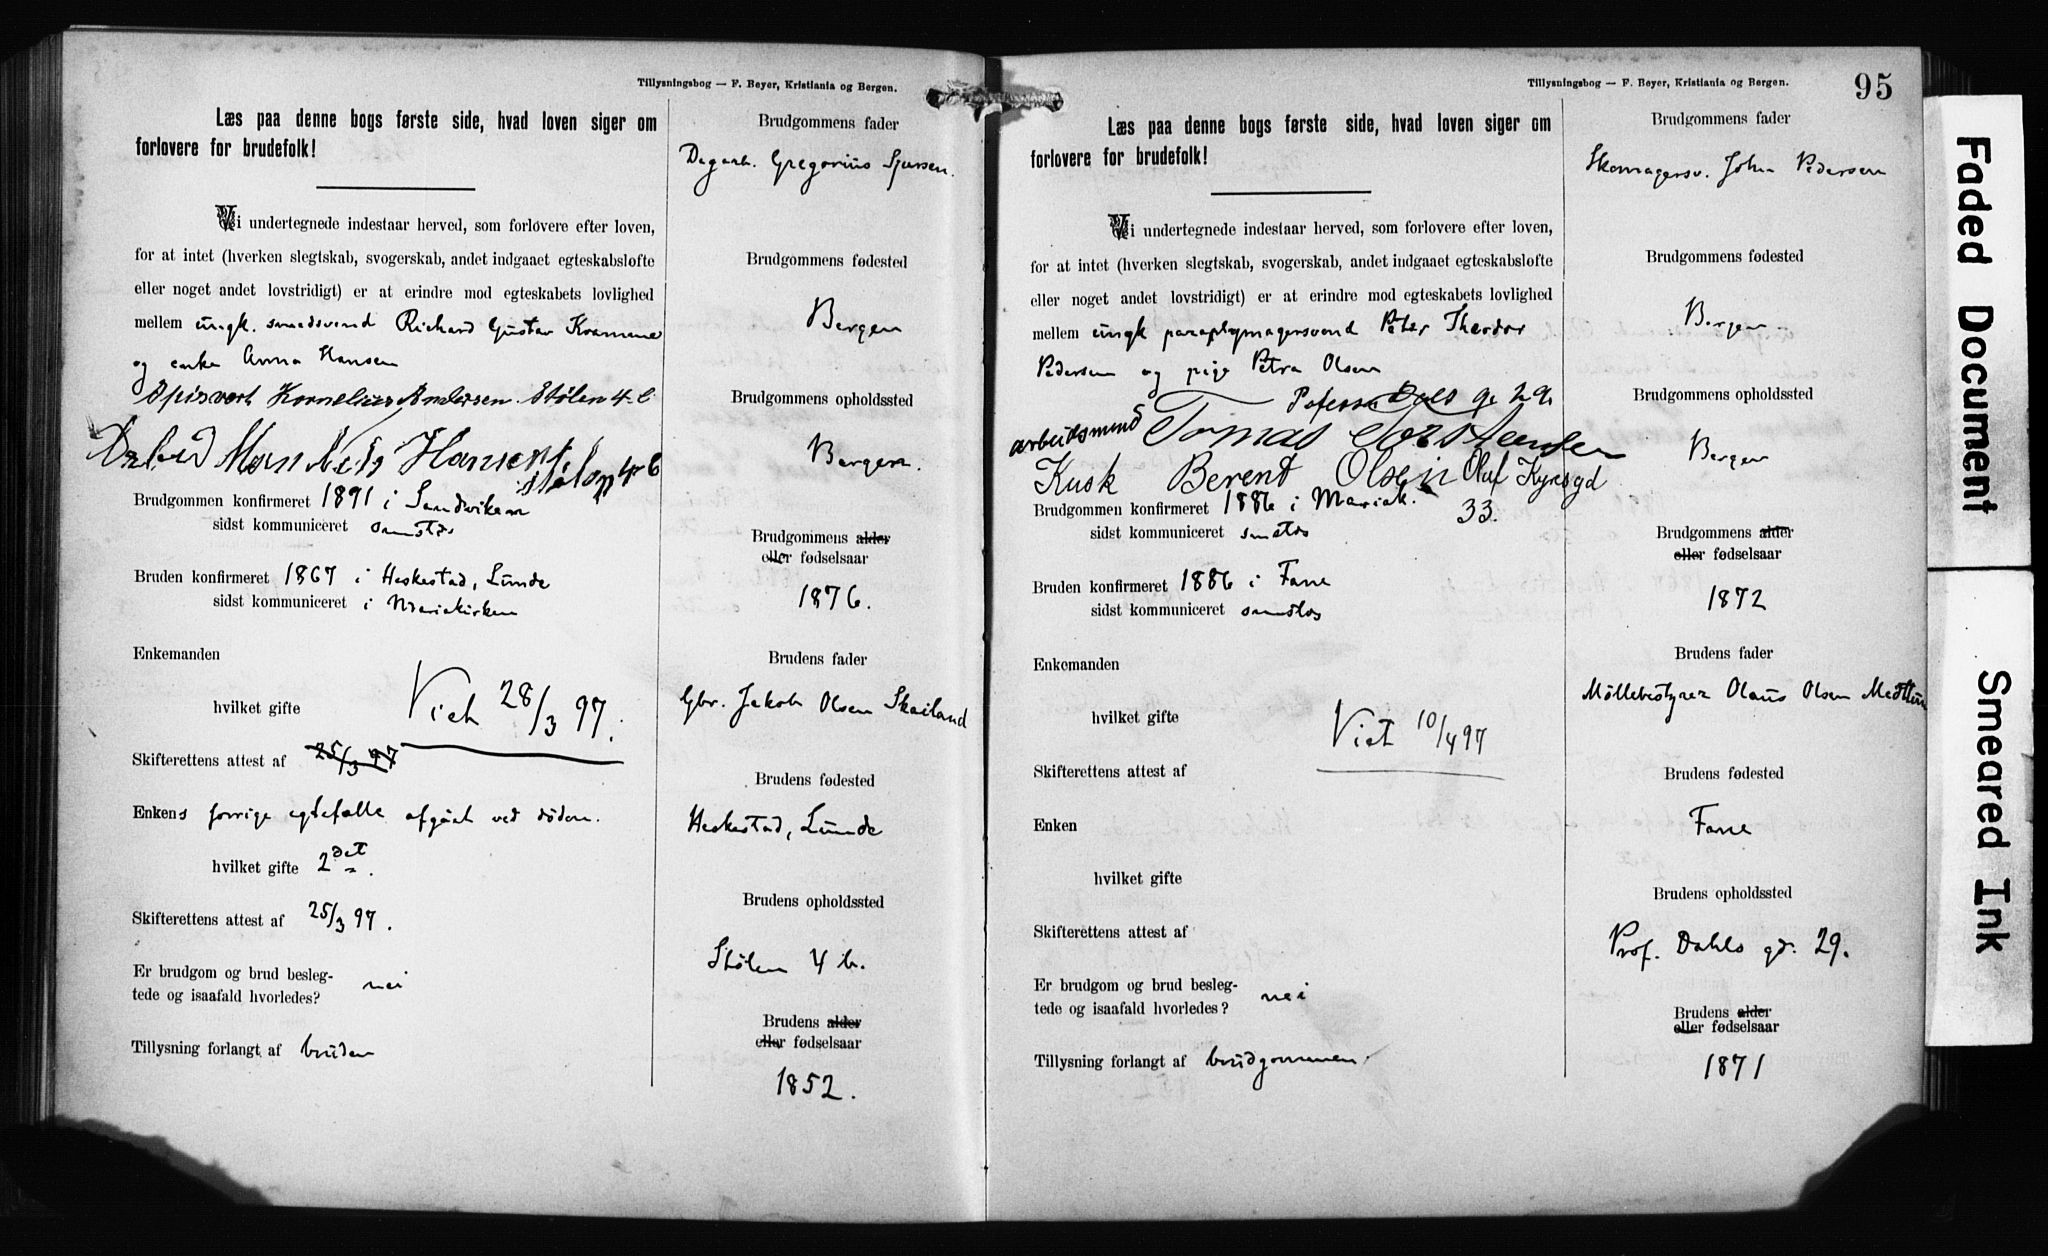 Tillysningsbog — F. Beyer, Kristiania og Bergen.
Læs paa denne bogs første side, hvad loven siger om
forlovere for brudefolk!
Vi undertegnede indestaar herved, som forlovere efter loven,
for at intet (hverken slegtskab, svogerskab, andet indgaaet egteskabsløfte
eller noget andet lovstridigt) er at erindre mod egteskabets lovlighed
mellem ungk. smedsvend Richard Gustav
og enke Anna Hansen
Spisvert Kornelius Andersen Stølen 4 b
Man Nils Hansen
Stølen 4 b
Brudgommen konfirmeret 1891 i Sandviken
sidst kommuniceret samstds
Bruden konfirmeret 1867 i Heskestad, Lunde
sidst kommuniceret i Mariakirken
Enkemanden
hvilket gifte
Viet 28/3 97.
Skifterettens attest af 25/3 97
Enkens forrige egtefælle afgåat ved døden.
hvilket gifte 2det.
Skifterettens attest af 25/3 97.
Er brudgom og brud besleg-
tede og isaafald hvorledes? nei
Tillysning forlangt af bruden
Brudgommens fader
Dagarb. Gregorius Sjursen.
Brudgommens fødested
Bergen
Brudgommens opholdssted
Bergen.
Brudgommens alder
eller fødselsaar
1876.
Brudens fader
Gbr. Jakob Olsen Skailand
Brudens fødested
Heskestad, Lunde
Brudens opholdssted
Stølen 4 b.
Brudens alder
eller fødselsaar
1852.
Tillysningsbog — F. Beyer, Kristiania og Bergen.
95
Læs paa denne bogs første side, hvad loven siger om
forlovere for brudefolk!
Vi undertegnede indestaar herved, som forlovere efter loven,
for at intet (hverken slegtskab, svogerskab, andet indgaaet egteskabsløfte
eller noget andet lovstridigt) er at erindre mod egteskabets lovlighed
mellem ungk paraplymagersvend Peter Theodor
Pedersen og pige Petra Olsen
29
arbeidsmand Tomas Torstensen
Kusk Berent Olsen Oluf Kyresgd
33.
Brudgommen konfirmeret 1886 i Mariak.
sidst kommuniceret samstds
Bruden konfirmeret 1886 i Fane
sidst kommuniceret samstds
Enkemanden
hvilket gifte
Viet 10/4 97
Skifterettens attest af
Enken
hvilket gifte
Skifterettens attest af
Er brudgom og brud besleg-
tede og isaafald hvorledes? nei
Tillysning forlangt af brudgommen
Brudgommens fader
Skomagersv. John Pedersen
Brudgommens fødested
Bergen
Brudgommens opholdssted
Bergen
Brudgommens alder
eller fødselsaar
1872
Brudens fader
Møllebestyrer Olaus Olsen Midttun
Brudens fødested
Fane
Brudens opholdssted
Prof. Dahls gd. 29.
Brudens alder
eller fødselsaar
1871
Faded Document
Smeared Ink